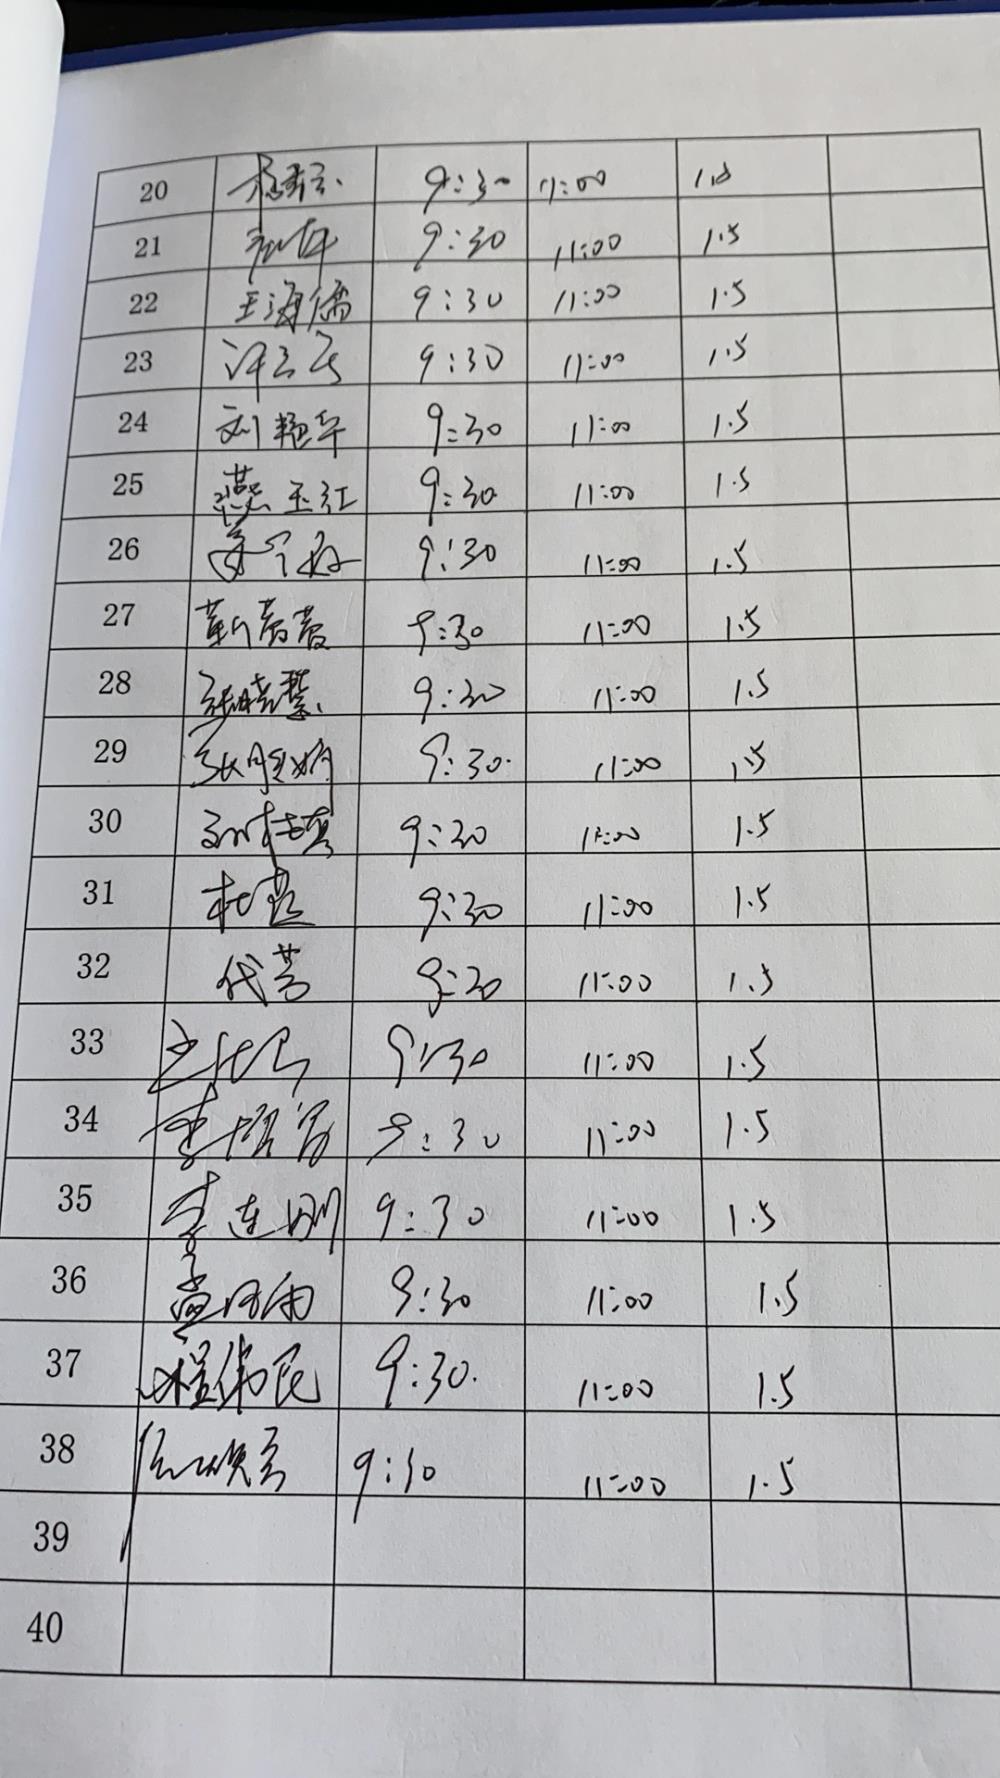 20 9:30 11:00
21 9:30 11:00 1.5
22 王海儒 9:30 11:00 1.5
23 9:30 11:00 1.5
24 刘艳华 9:30 11:00 1.5
25 燕玉红 9:30 11:00 1.5
26 9:30 11:00 1.5
27 靳 9:30 11:00 1.5
28 张晓慧 9:30 11:00 1.5
29 张 9:30 11:00 1.5
30 9:30 11:00 1.5
31 杜 9:30 11:00 1.5
32 代芳 9:30 11:00 1.5
33 9:30 11:00 1.5
34 李 9:30 11:00 1.5
35 李连刚 9:30 11:00 1.5
36 孟 雨 9:30 11:00 1.5
37 程伟民 9:30 11:00 1.5
38 9:30 11:00 1.5
39
40